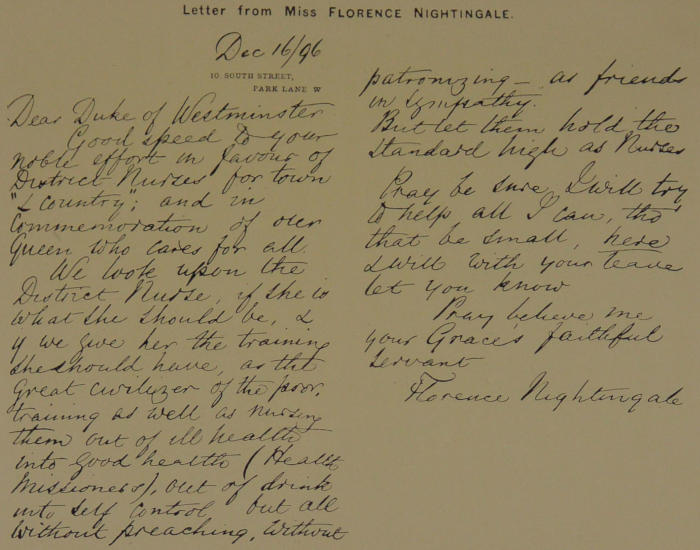 Letter from Miss FLORENCE NIGHTINGALE.
Dec 16/96
10 SOUTH STREET,
PARK LANE W
Dear Duke of Westminster
Good speed to your
noble effort in favour of
District Nurses for town
"& country"; and in
Commemoration of our
Queen who cares for all.
We look upon the
District Nurse, if she is
what she should be, &
if we give her the training
she should have, as the
great civilizer of the poor,
training as well as nursing
them out of ill health
into good health (Health
Missioners), out of drink
into self control but all
without preaching, without
patronizing – as friends
in sympathy.
But let them hold the
standard high as Nurses
Pray be sure I will try
to help all I can, tho'
that be small, here
I will with your leave
let you know
Pray believe me
your Grace's faithful
servant
Florence Nightingale